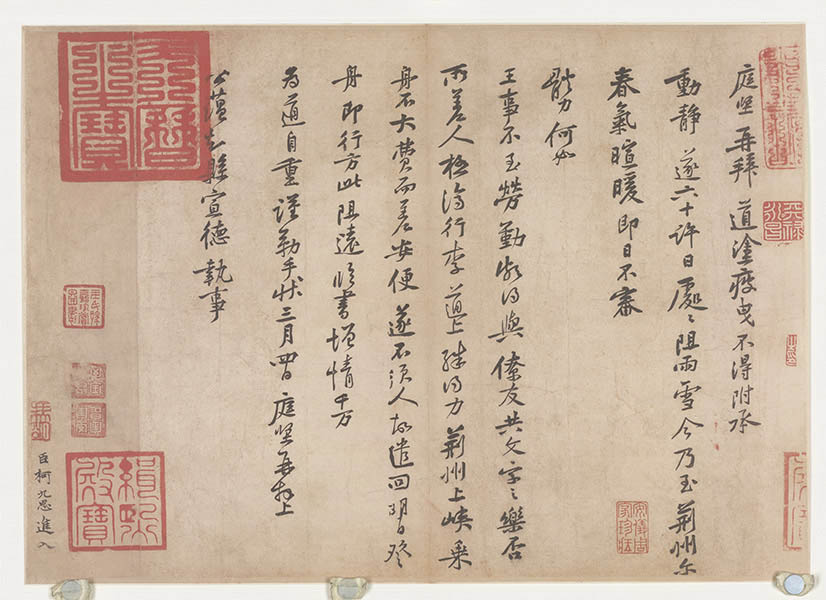 庭堅再拜道塗疲曳不得附承
動靜遂六十許日處〻阻雨雪今乃至荊州尔
春氣暄暖即日不審
體力何如
王事不至勞勤頗得與僚友共文字之樂否
所差人極濟行李道上殊得力荊州上峽乘
舟不大費而差安便遂不須人故遣回明日登
舟即行方此阻遠臨書增情千万
為道自重謹勒手狀三月四日庭堅再拜上
公蘊知縣宣德執事
臣柯九思進入
天曆之寶
緝熙殿寶
安儀周家珍藏